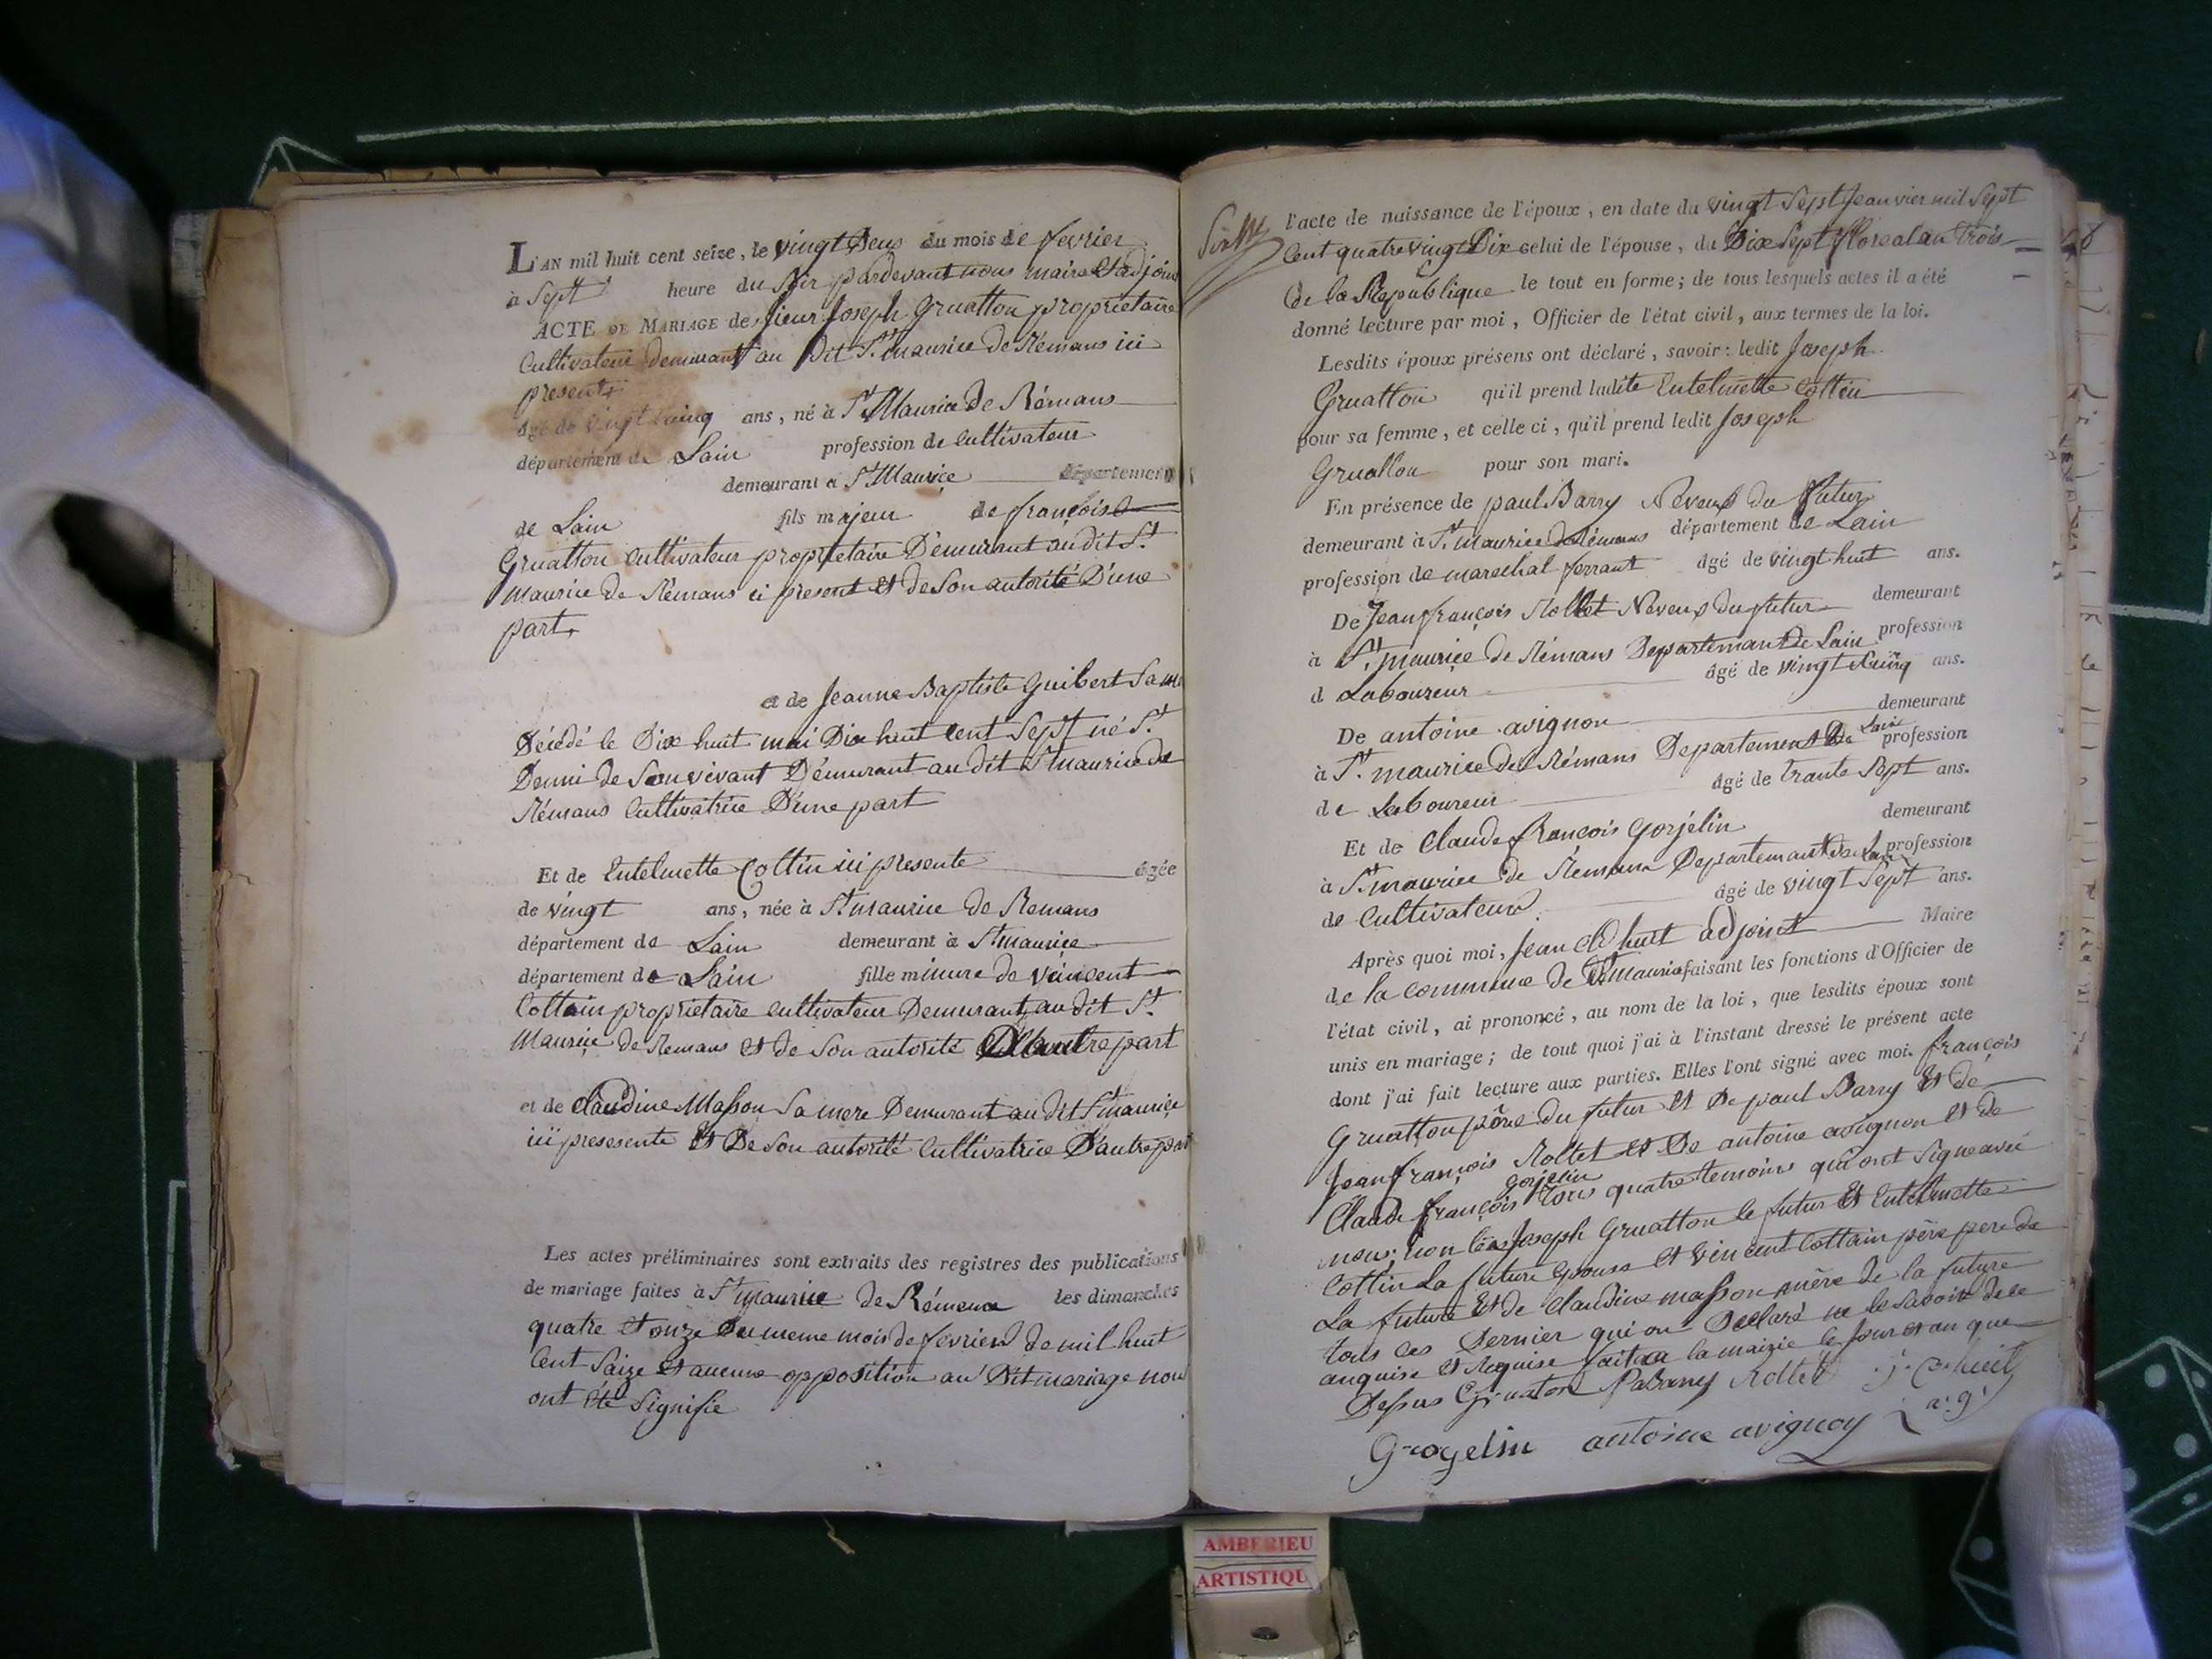 L'AN mil huit cent seize, le vingt Deus du mois de fevrier
à Sept heure du Soir pardevant nous maire et adjoint
ACTE DE MARIAGE de Sieur Joseph Gruatton proprietaire
Cultivateur demurant au dit St. maurice de Rémans ici
present
âgé de vingt cinq ans, né à St. Maurice De Rémans
département de Lain profession de Cultivateur
demeurant à St Maurice département
de Lain fils majeur de françois
Gruatton Cultivateur proprietaire Demurant au dit St.
Maurice de Rémans ici present et de Son autorité D'une
part.
et de Jeanne Baptiste Guibert Sa
Décédé le Dix huit mai Dix huit Cent Sept né St.
Denni de Son vivant Démurant au dit St maurice de
Rémans Cultivatrice D'une part
Et de Entelmette Cottin ici presente âgée
de vingt ans, née à St maurice de Remans
département de Lain demeurant à St maurice
département de Lain fille minure de vincent
Cottain proprietaire cultivateur Demurant au dit St.
Maurice de Remans et de Son autorité D'autre part
et de Claudine Masson Sa mere Demurant au dit St maurice
ici presesente et De Son autorité Cultivatrice D'autre part
Les actes préliminaires sont extraits des registres des publications
de mariage faites à St maurice de Rémens les dimanches
quatre et onze Du meme mois de fevrier de mil huit
Cent Saize et aucune opposition au Dit mariage nou
ont été Signifie
l'acte de naissance de l'époux, en date du vingt Sept Jeanvier mil Sept
Cent quatre vingt Dix celui de l'épouse, du Dix Sept floreal an trois
de la Republique le tout en forme; de tous lesquels actes il a été
donné lecture par moi, Officier de l'état civil, aux termes de la loi.
Lesdits époux présens ont déclaré, savoir: ledit Joseph
Gruatton qu'il prend ladite Entelmette Cottin
pour sa femme, et celle ci, qu'il prend ledit Joseph
Gruatton pour son mari.
En présence de paul Barry Neveux du futur
demeurant à St. maurice de Rémans département de Lain
profession de marechal ferrant âgé de vingt huit ans.
De Jean françois Rollet Neveux du futur demeurant
à St. maurice de Rémans Departemant de Lain profession
d Laboureur âgé de vingt Cinq ans.
De antoine avignon demeurant
à St. maurice de Rémans Departement De Lain profession
de Laboureur âgé de trante Sept ans.
Et de Claude françois Gorjelin demeurant
à St. maurice de Remans Departemant de Lain profession
de Cultivateur âgé de vingt Sept ans.
Après quoi moi, Jean Cd huit adjoint Maire
de la commune de St Maurice faisant les fonctions d'Officier de
l'état civil, ai prononcé, au nom de la loi, que lesdits époux sont
unis en mariage; de tout quoi j'ai à l'instant dressé le présent acte
dont j'ai fait lecture aux parties. Elles l'ont signé avec moi. françois
Gruatton père du futur et De paul Barry et de
Jean françois Rollet et De antoine avignon et de
Gorjelin
Claude françois tous quatre temoins qui ont Signe avec
nous; non Joseph Gruatton le futur et Entelmette
Cottin La future Epouse et Vincent Cottain père pere de
La future et de Claudine masson mère de la future
tous Ces Dernier qui on Déclaré ne le Savoir de ce
anquise et Requise fait a la mairie le Jour et an que
Desus Gruaton P Barry Rollet
Grogelin antoine avignon
AMBERIEU
ARTISTIQU